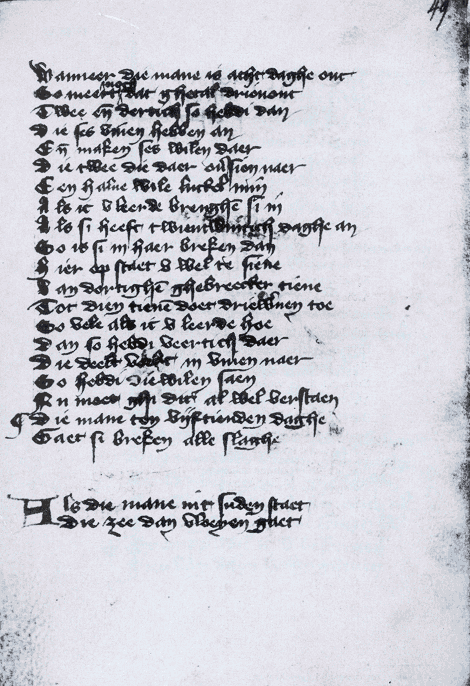 49
Wanneer die mane is acht daghe out
So meert dat ghetal driouout
Twee en dertich so hebdi dan
Die ses vuien hebben an
En maken ses wilen daer
Die twee die daer ouer sion naer
Een halue wile luttel min
Als ic v leerde brenghe si in
Als si heeft twintich daghe an
So is si in haer breken dan
Hier op staet v wel te siene
Van dertighe ghebreecker tiene
Tot dien tiene doet driewuen toe
So vele als ic v leerde hoe
Dan so hebdi veertich daer
Die deelt in vuien naer
So hebdi wilen saen
Nu moet ghi dit al wel verstaen
Die mane ten vijftienden daghe
Gaet si breken alle slaghe
Als die mane int suden staet
Die zee dan vloeyen gaet